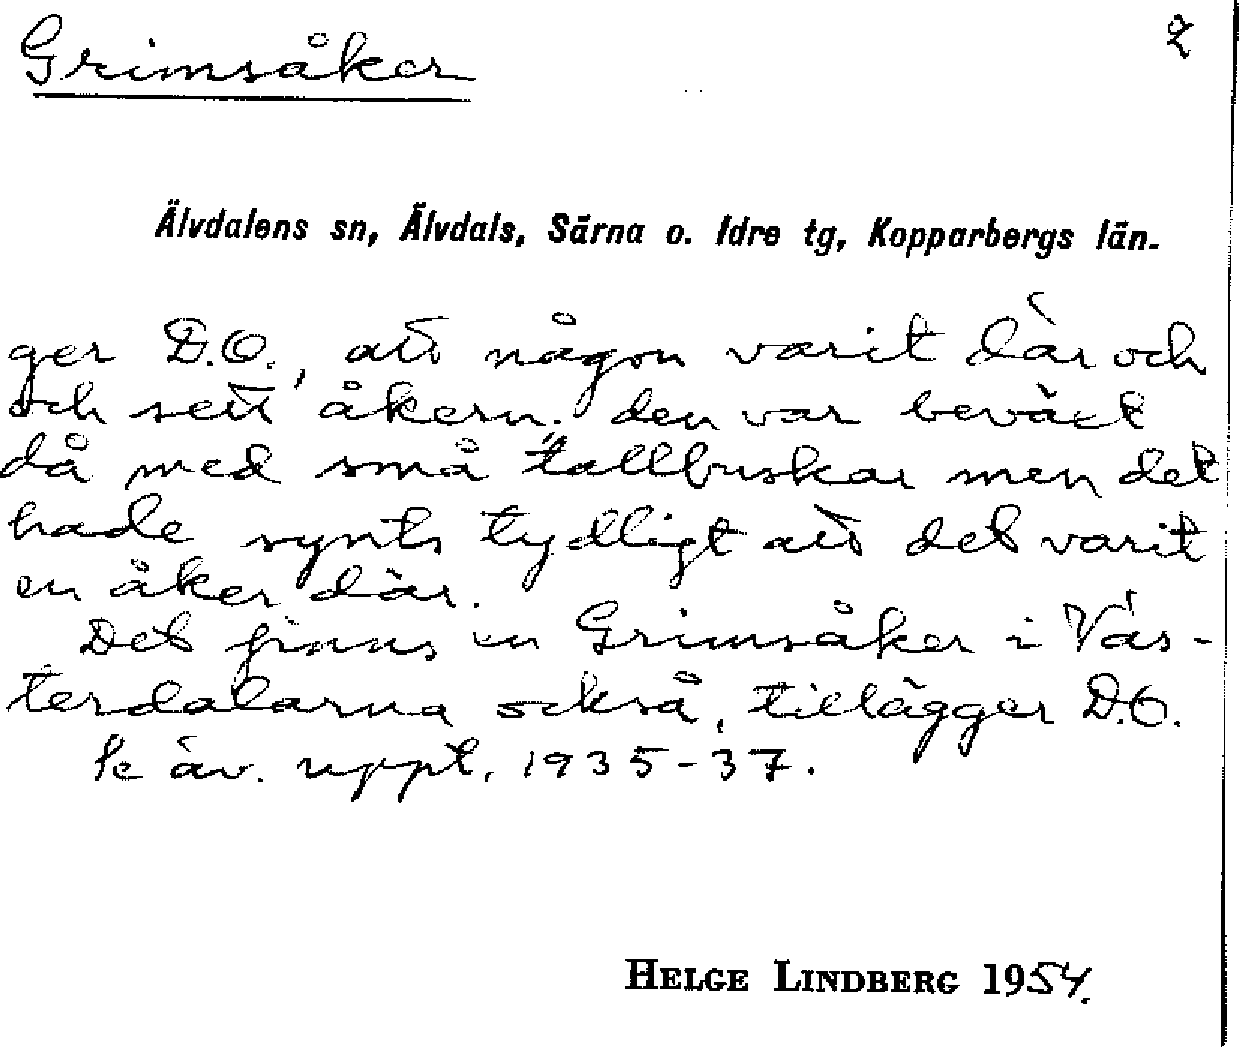 Grimsåker
2
Älvdalens sn, Älvdals, Särna o. Idre tg, Kopparbergs län.
ger D.O., att någon varit där och
och sett åkern; den var beväxt
då med små tallbuskar men det
hade synts tydligt att det varit
en åker där.
Det finns en Grimsåker i Väs-
terdalarna också, tillägger D.O.
Se äv. uppt. 1935-37.
HELGE LINDBERG 1954.